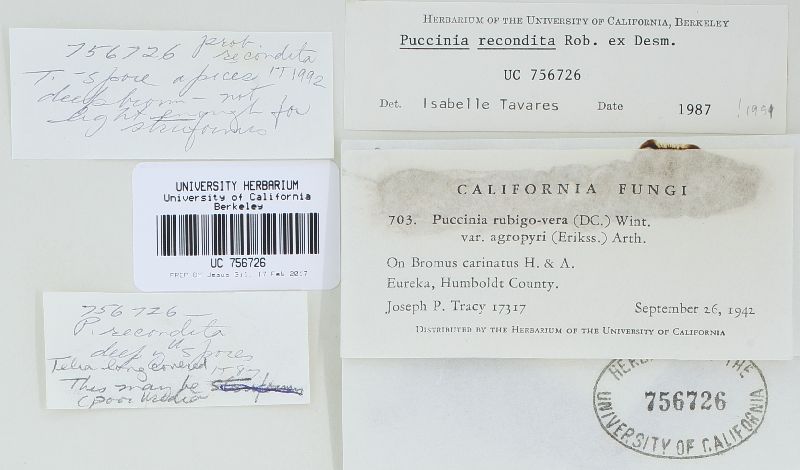 756726 prob.
recondita
T.-spore apices IT 1992
deep brown - not
light enough for
striiformis
HERBARIUM OF THE UNIVERSITY OF CALIFORNIA, BERKELEY
Puccinia recondita Rob. ex Desm.
UC 756726
Det. Isabelle Tavares Date 1987
UNIVERSITY HERBARIUM
University of California
Berkeley
UC 756726
PREP BY Jesus Gil, 17 Feb 2017
CALIFORNIA FUNGI
703. Puccinia rubigo-vera (DC.) Wint.
var. agropyri (Erikss.) Arth.
On Bromus carinatus H. & A.
Eureka, Humboldt County.
Joseph P. Tracy 17317 September 26, 1942
DISTRIBUTED BY THE HERBARIUM OF THE UNIVERSITY OF CALIFORNIA
756726 -
P. recondita
deep spores
Telia long covered
This may be
(poor uredia
THE
756726
UNIVERSITY OF CALIFORNIA